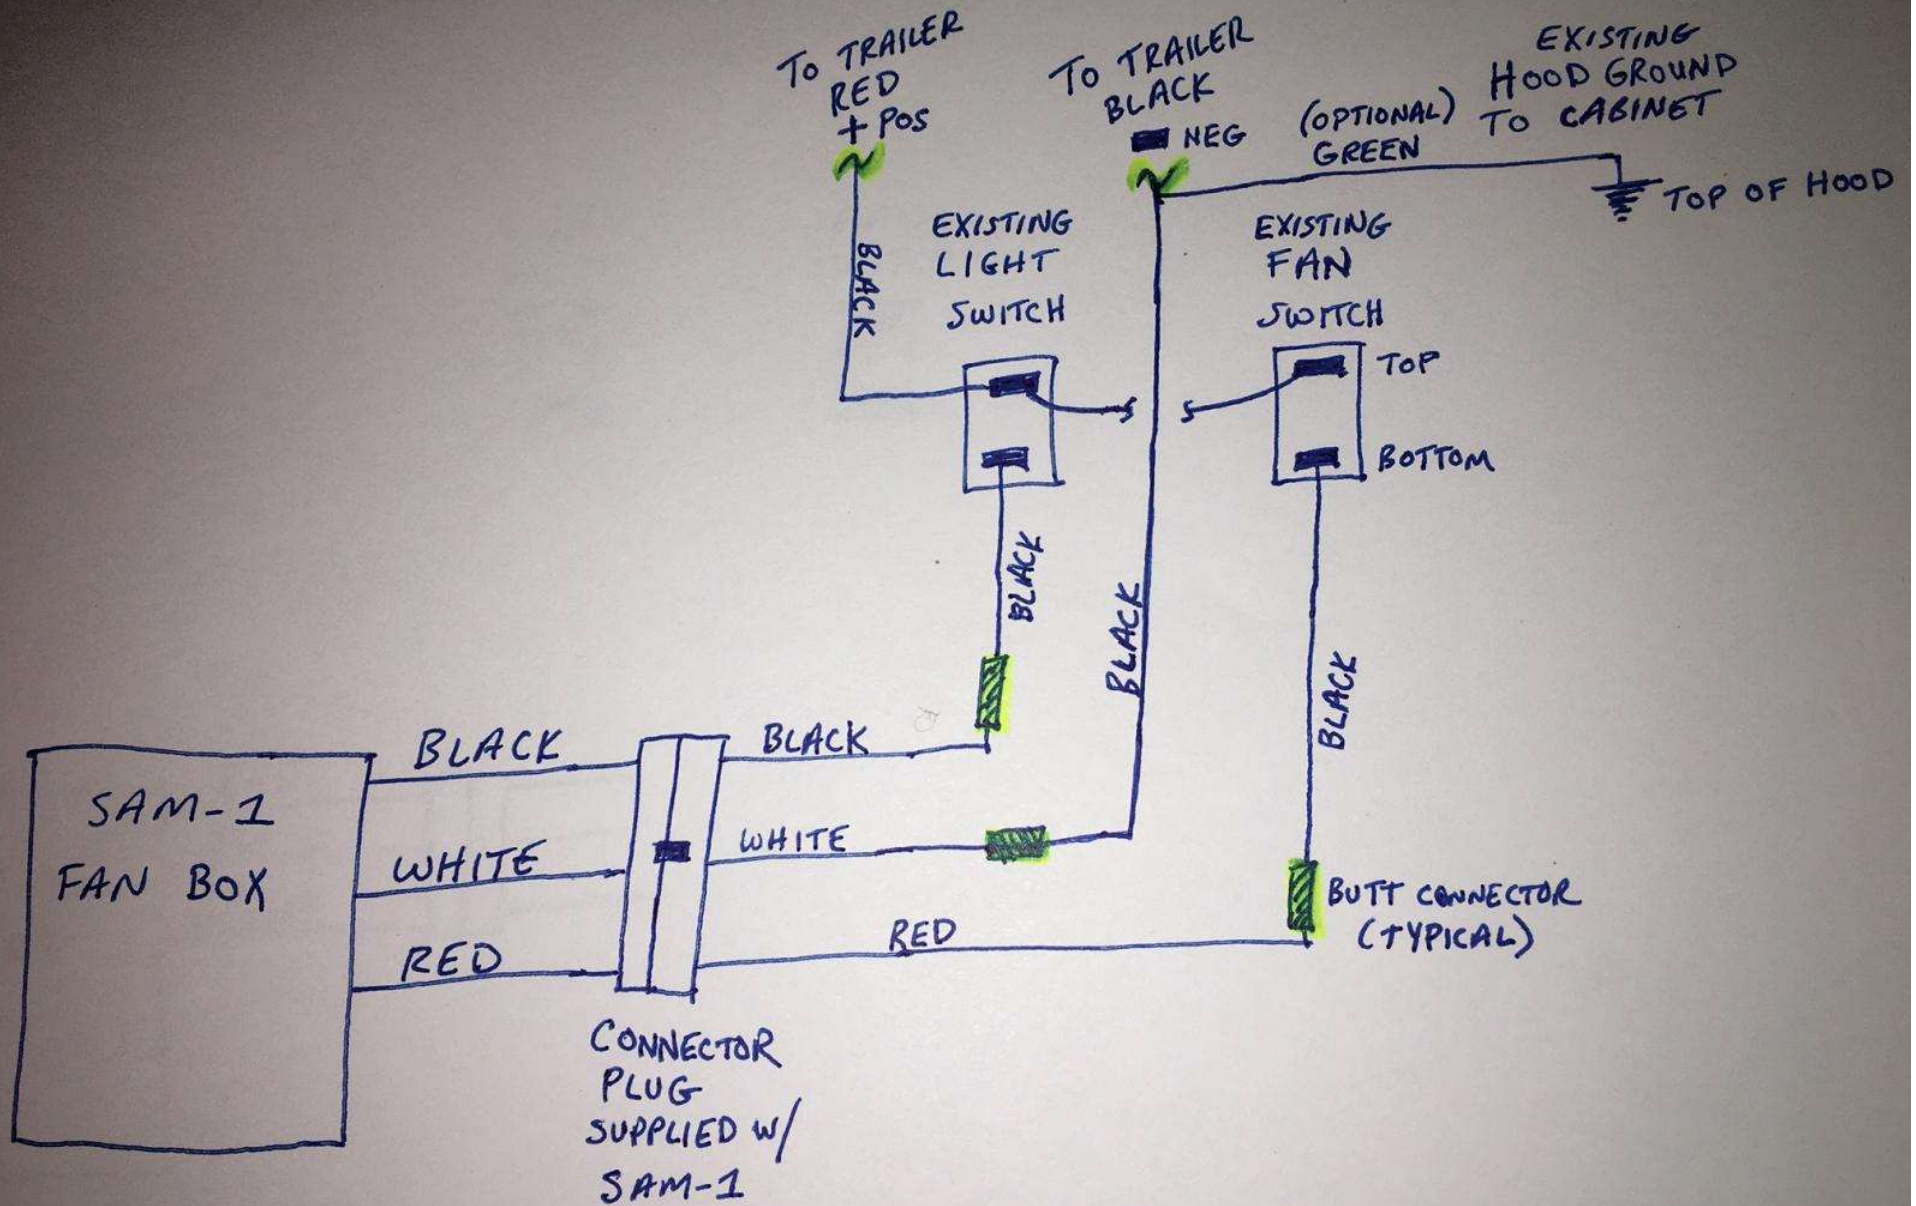 TO TRAILER
RED
+ POS
TO TRAILER
BLACK
NEG
(OPTIONAL)
GREEN
EXISTING
HOOD GROUND
TO CABINET
TOP OF HOOD
BLACK
EXISTING
LIGHT
SWITCH
EXISTING
FAN
SWITCH
TOP
BOTTOM
BLACK
BLACK
BLACK
SAM-1
FAN BOX
BLACK
WHITE
RED
BLACK
WHITE
RED
BUTT CONNECTOR
(TYPICAL)
CONNECTOR
PLUG
SUPPLIED W/
SAM-1